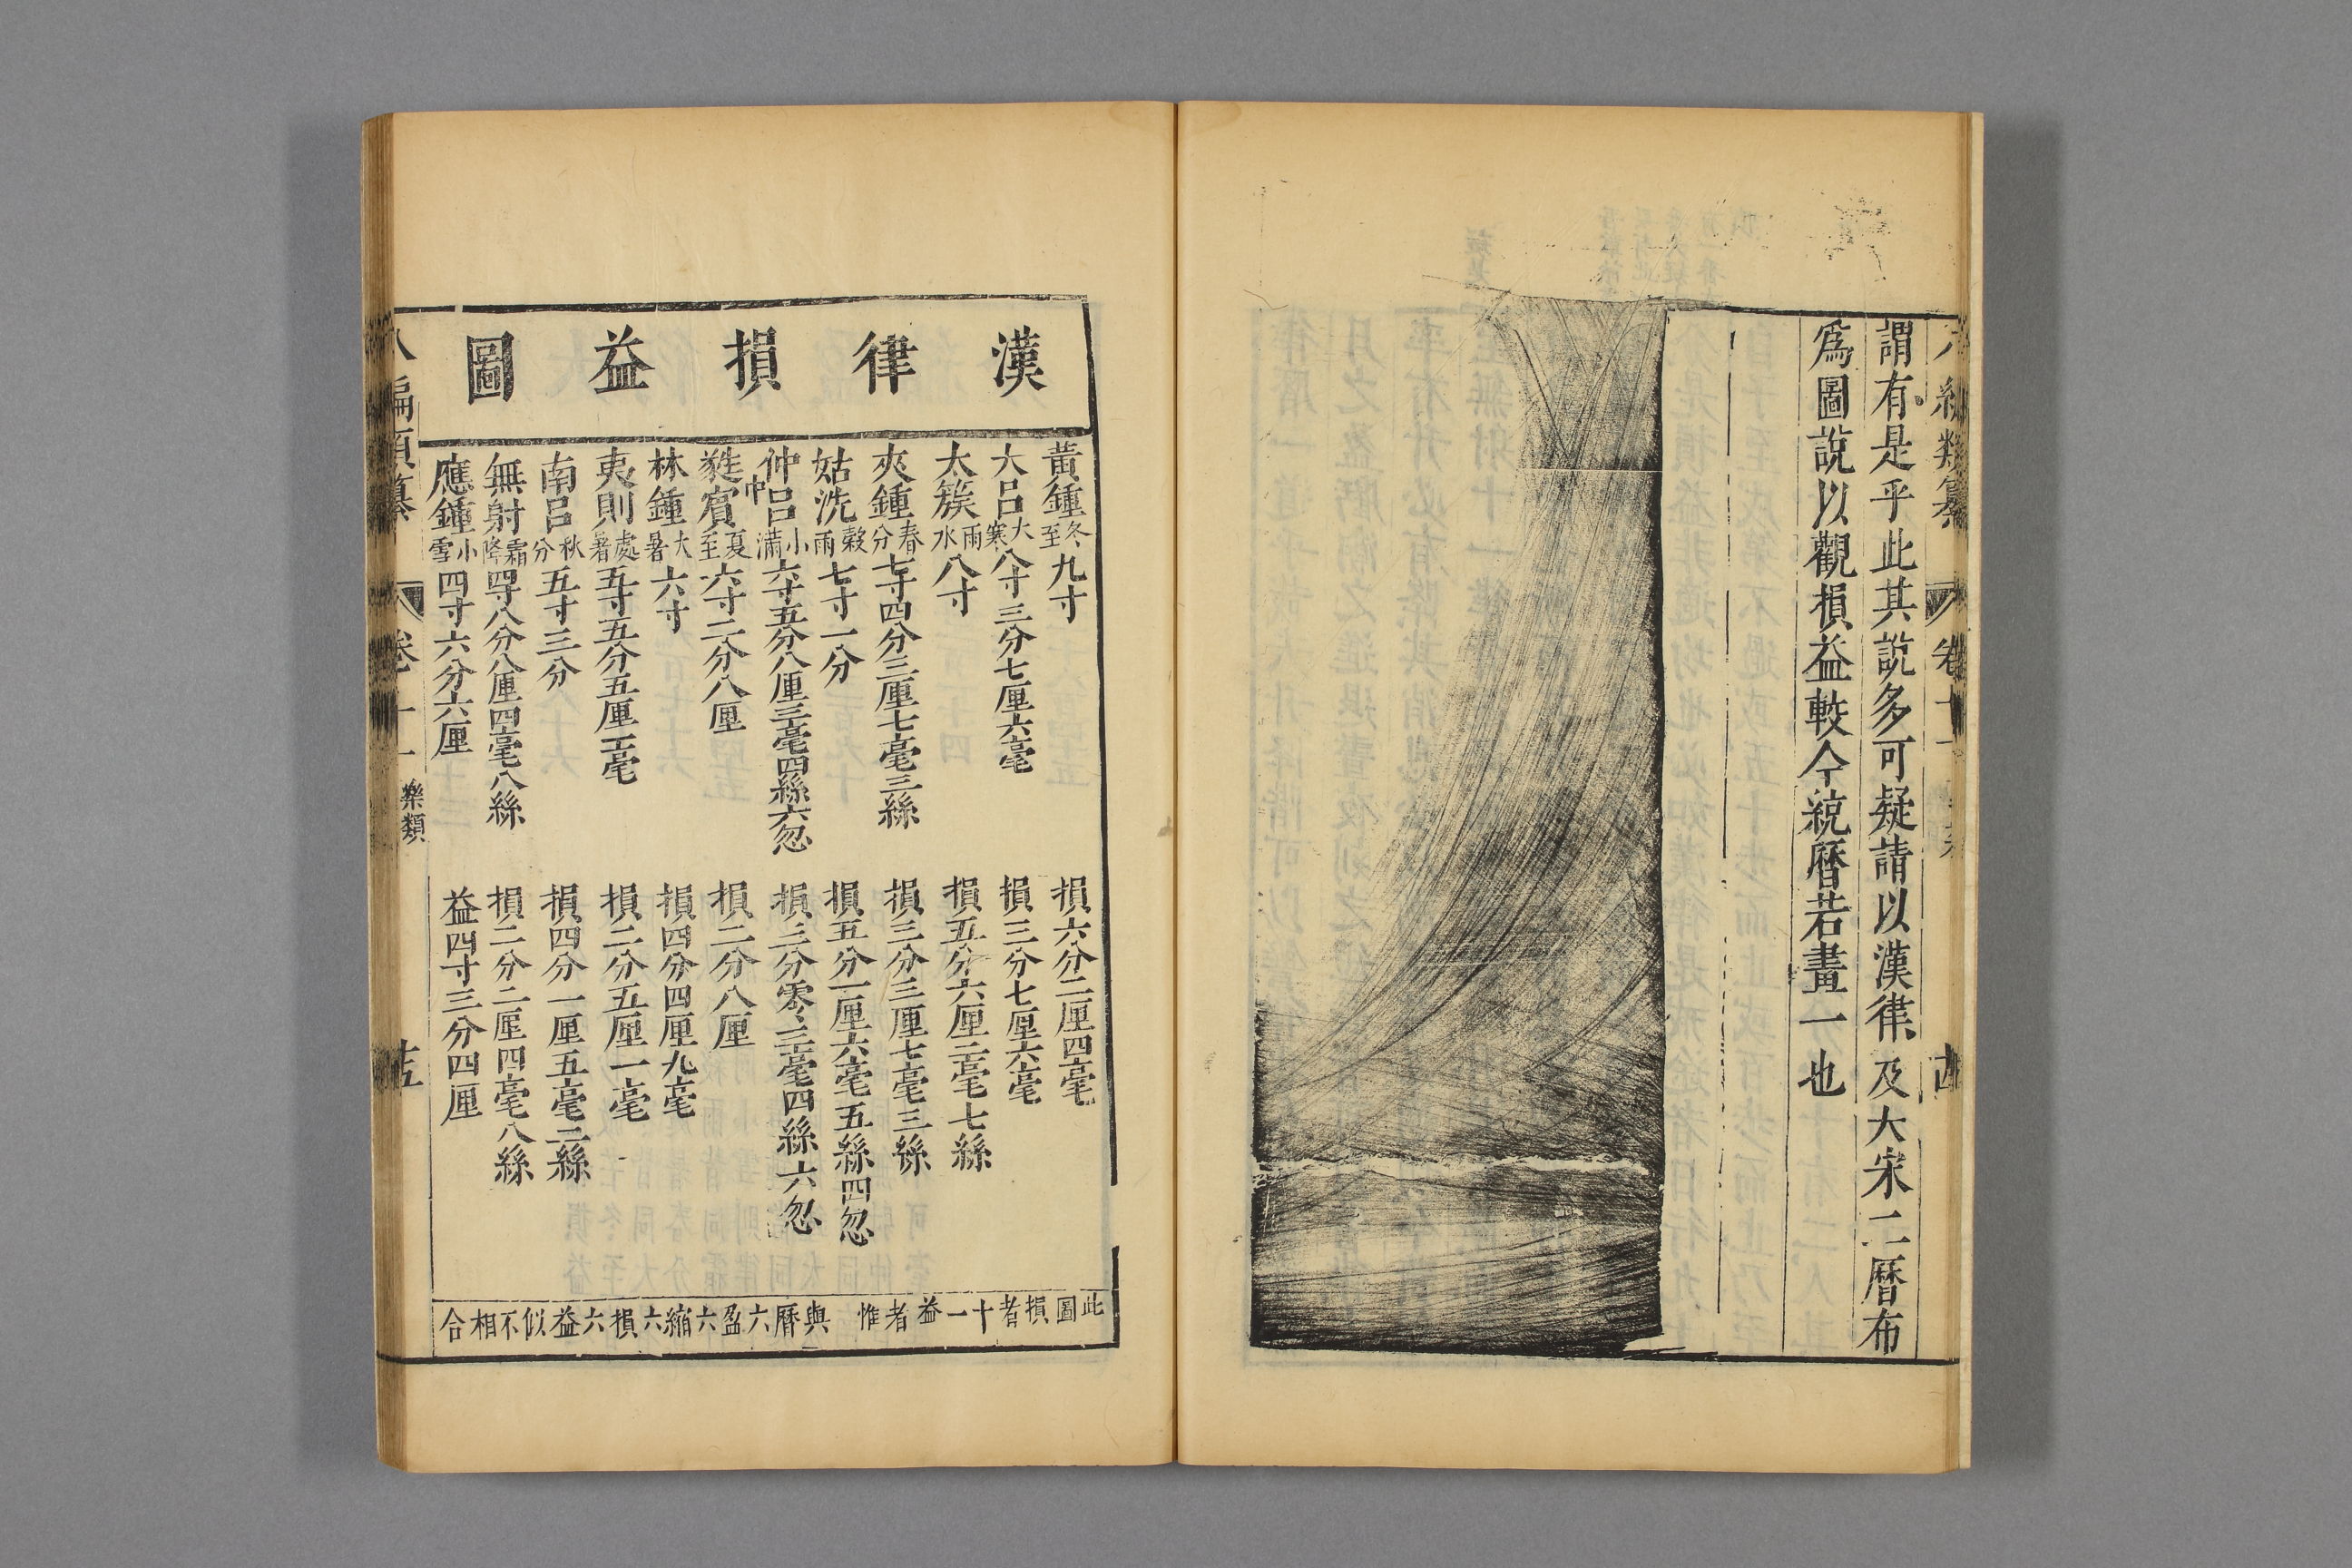 謂有是乎此其說多可疑請以漢律及大宋二曆布
爲圖說以觀損益較今統曆若畫一也
漢律損益圖
黃鍾冬至九寸 損六分二厘四毫
大呂大寒八寸三分七厘六毫 損三分七厘六毫
太簇雨水八寸 損五分六厘二毫七絲
夾鍾春分七寸四分三厘七毫三絲 損三分三厘七毫三絲
姑洗穀雨七寸一分 損五分一厘六毫五絲四忽
仲呂小滿六寸五分八厘三毫四絲六忽 損三分零三毫四絲六忽
蕤賓夏至六寸二分八厘 損二分八厘
中
林鍾大暑六寸 損四分四厘九毫
夷則處暑五寸五分五厘一毫 損二分五厘一毫
南呂秋分五寸三分 損四分一厘五毫二絲
無射霜降四寸八分八厘四毫八絲 損二分二厘四毫八絲
應鍾小雪四寸六分六厘 益四寸三分四厘
此圖損者十一益者惟 與曆六盈六縮六損六益似不相合
八編類纂 卷十一 樂類 十五